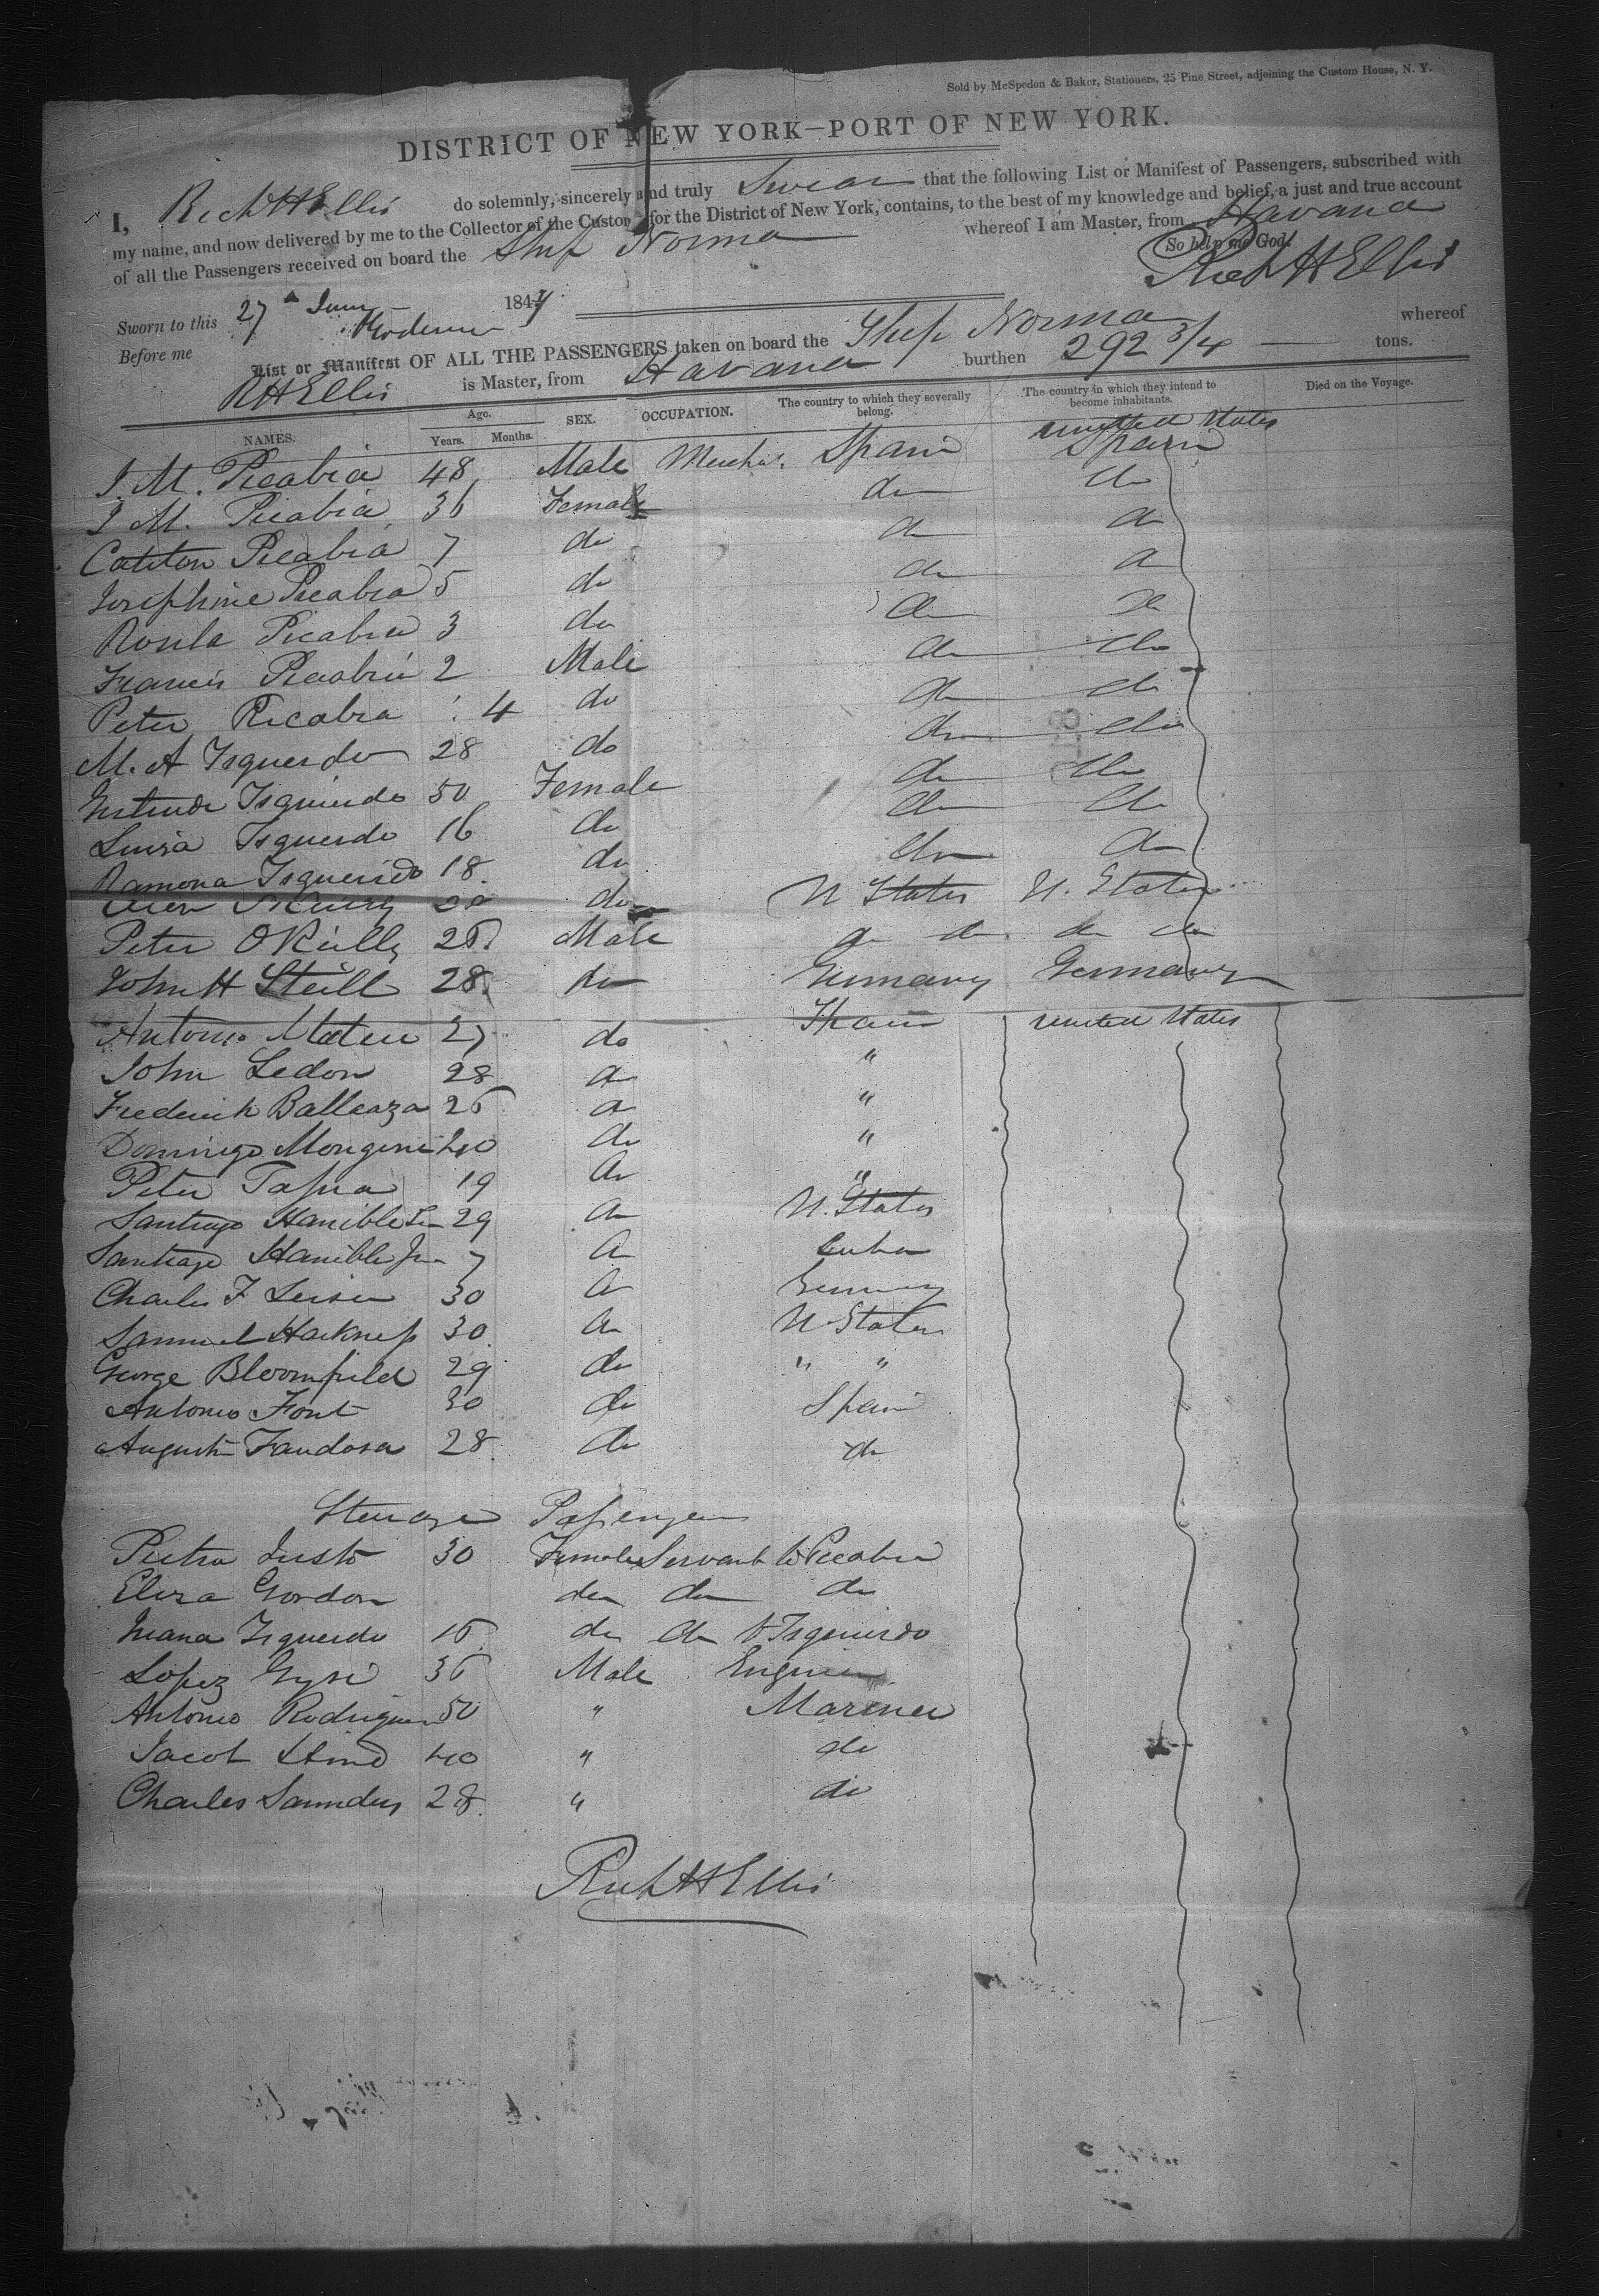 Sold by McSpedon & Baker, Stationers, 25 Pine Street, adjoining the Custom House, N. Y.
DISTRICT OF NEW YORK—PORT OF NEW YORK.
I, Rich H Ellis do solemnly, sincerely and truly Swear that the following List or Manifest of Passengers, subscribed with
my name, and now delivered by me to the Collector of the Custom for the District of New York, contains, to the best of my knowledge and belief, a just and true account
of all the Passengers received on board the Ship Norma whereof I am Master, from Havana
So help me God.
Rich H Ellis
Sworn to this 27 June 184
Before me
List or Manifest OF ALL THE PASSENGERS taken on board the Ship Norma whereof
R H Ellis is Master, from Havana burthen 292 3/4 tons.
NAMES. Age. Years. Months. SEX. OCCUPATION. The country to which they severally belong. The country in which they intend to become inhabitants. Died on the Voyage.
united States
J. M. Picabia 48 Male Mercht. Spain Spain
J M. Picabia 36 Female do do
Picabia 7 do do do
Josephine Picabia 5 do do do
Picabia 3 do do do
Francis Picabia 2 Male do do
Peter Picabia 4 do do do
M. A Isquerdo 28 do do do
Gertrude Isquierdo 50 Female do do
Luisa Isquerdo 16 do do do
Ramona Isquerido 18 do do do
do U States U. States
Peter OReilly 26 Male do do do do
John H Steill 28 do Germany Germany
Antonio Mateu 27 do Spain united States
John Ledon 28 do "
Frederick Balleaza 26 do "
Domingo 40 do "
Peter Tapia 19 do "
Santiago Hanible Sn 29 do U. States
Santiago Hanible Jn 7 do Cuba
Charles F 30 do Germany
Samuel Harkness 30 do U States
George Bloomfield 29 do " "
Antonio Font 30 do Spain
Augustin Fandosa 28 do do
Steerage Passengers
Petra Justo 30 Female Servant to Picabia
Eliza Gordon do do do
Juana Isquerdo 15 do do to Isquierdo
Lopez 36 Male Engineer
Antonio Rodriguez 50 " Mariner
Jacob 40 " do
Charles Saunders 28 " do
Rich H Ellis